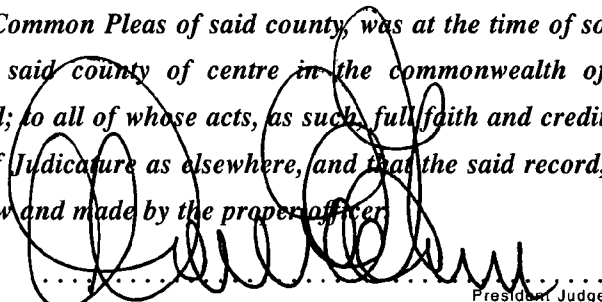 Common Pleas of said county, was at the time of so
said county of centre in the commonwealth of
l; to all of whose acts, as such, full faith and credit
f Judicature as elsewhere, and that the said record,
w and made by the proper officer.
President Judge